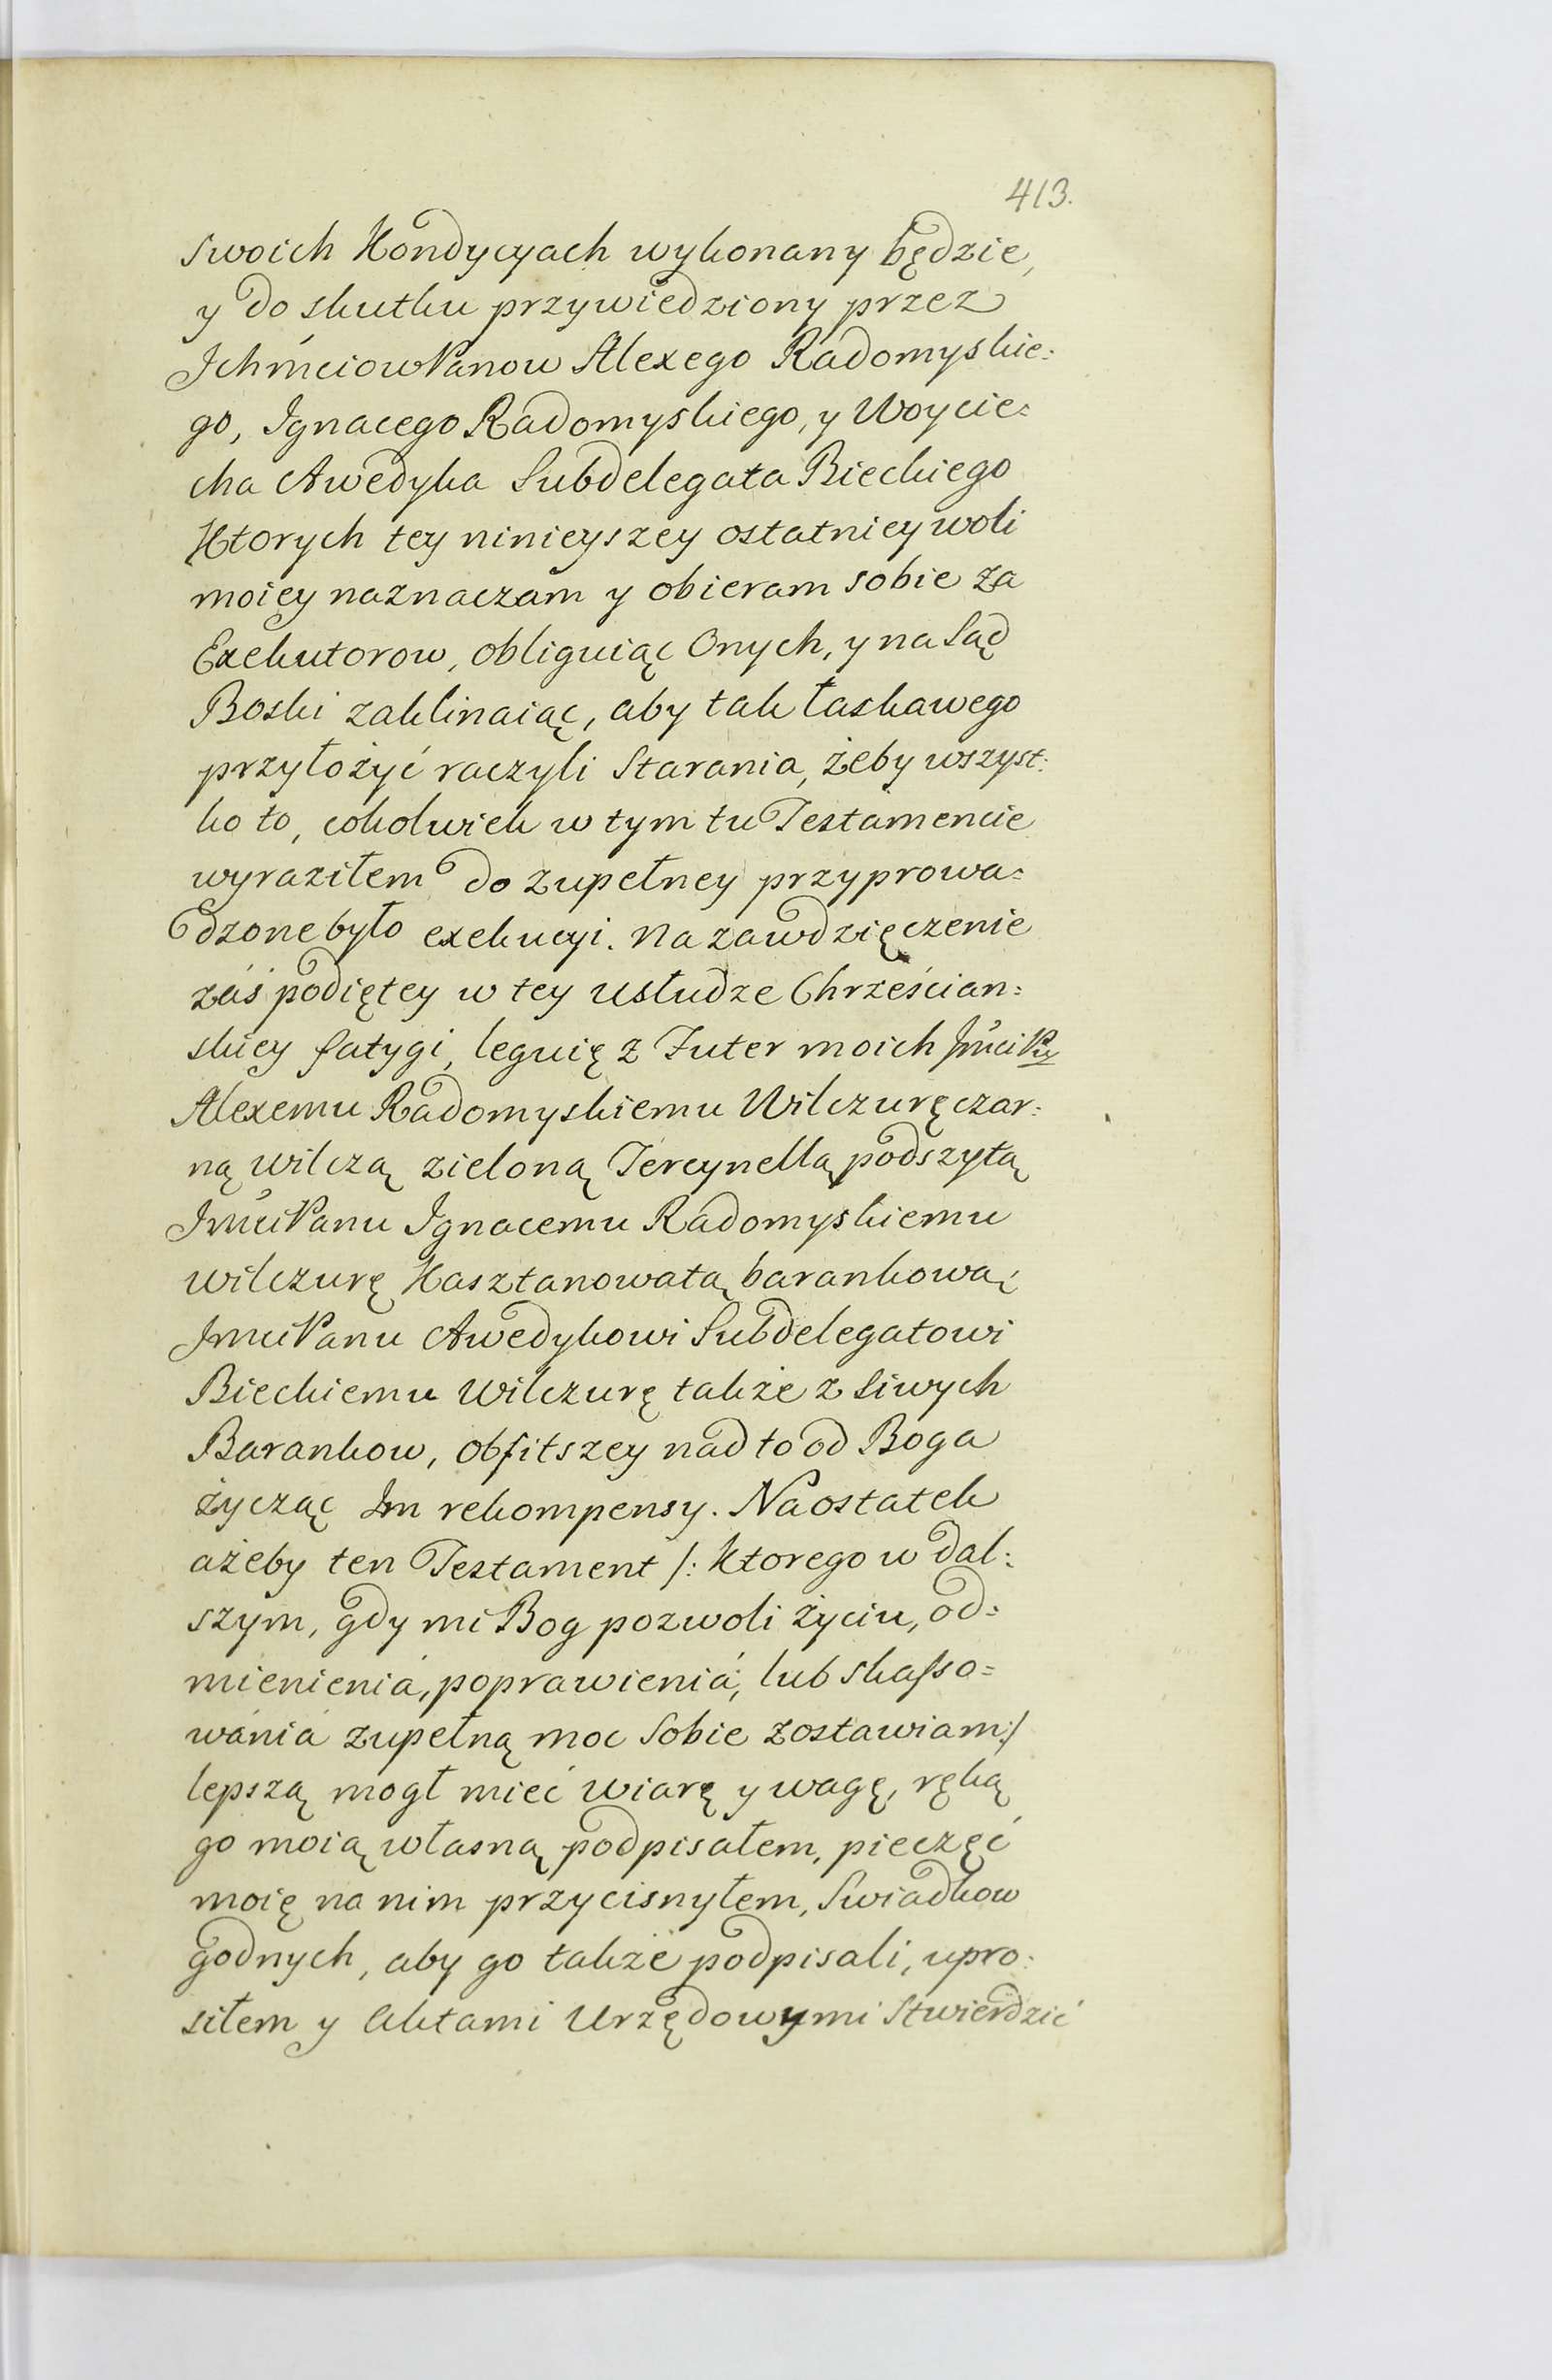 413.
swoich Kondycyach wykonany będzie,
y do skutku przywiedziony przez
Ichmciow Panow Alexego Radomyskie:
go, Ignacego Radomyskiego, y Woycie:
cha Awedyka Subdelegata Bieckiego
Ktorych tey ninieyszey ostatniey woli
moiey naznaczam y obieram sobie za
Exekutorow, obliguiąc Onych, y na Sąd
Boski zaklinaiąc, aby tak łaskawego
przyłożyć raczyli Starania, żeby wszyst:
ko to, cokolwiek w tym tu Testamencie
wyraziłem do zupełney przyprowa:
dzone było exekucyi. Na zawdzięczenie
záś podiętey w tey usłudze Chrześcian:
skiey fatygi, leguię z Futer moich Jmci Pu
Alexemu Radomyskiemu Wilczurę czar:
ną wilczą zieloną Tercynellą podszytą
Jmci Panu Ignacemu Radomyskiemu
wilczurę Kasztanowatą barankową
Jmci Panu Awedykowi Subdelegatowi
Bieckiemu Wilczurę także z Siwych
Barankow, obfitszey nad to od Boga
życząc Im rekompensy. Na ostatek
ażeby ten Testament /: Ktorego w dal:
szym, gdy mi Bog pozwoli życiu, od:
mienieniá, poprawieniá, lub skasso=
wániá zupełną moc Sobie zostawiam:/
lepszą mogł mieć wiarę y wagę, ręką
go moią własną podpisałem, pieczęć
moię na nim przycisnyłem, Swiadkow
godnych, aby go także podpisali, upro:
siłem y Aktami Urzędowymi Stwierdzić